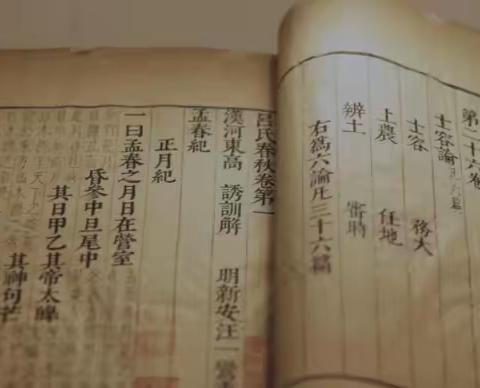 第二十六卷
士容論凡六篇
士容 務大
上農 任地
辨土 審時
右爲六論凡三十六篇
呂氏春秋卷第一
漢河東高 誘訓解 明新安汪一鸞
孟春紀
正月紀
一曰孟春之月日在營室
昏參中旦尾中
其日甲乙其帝太皞
其神句芒